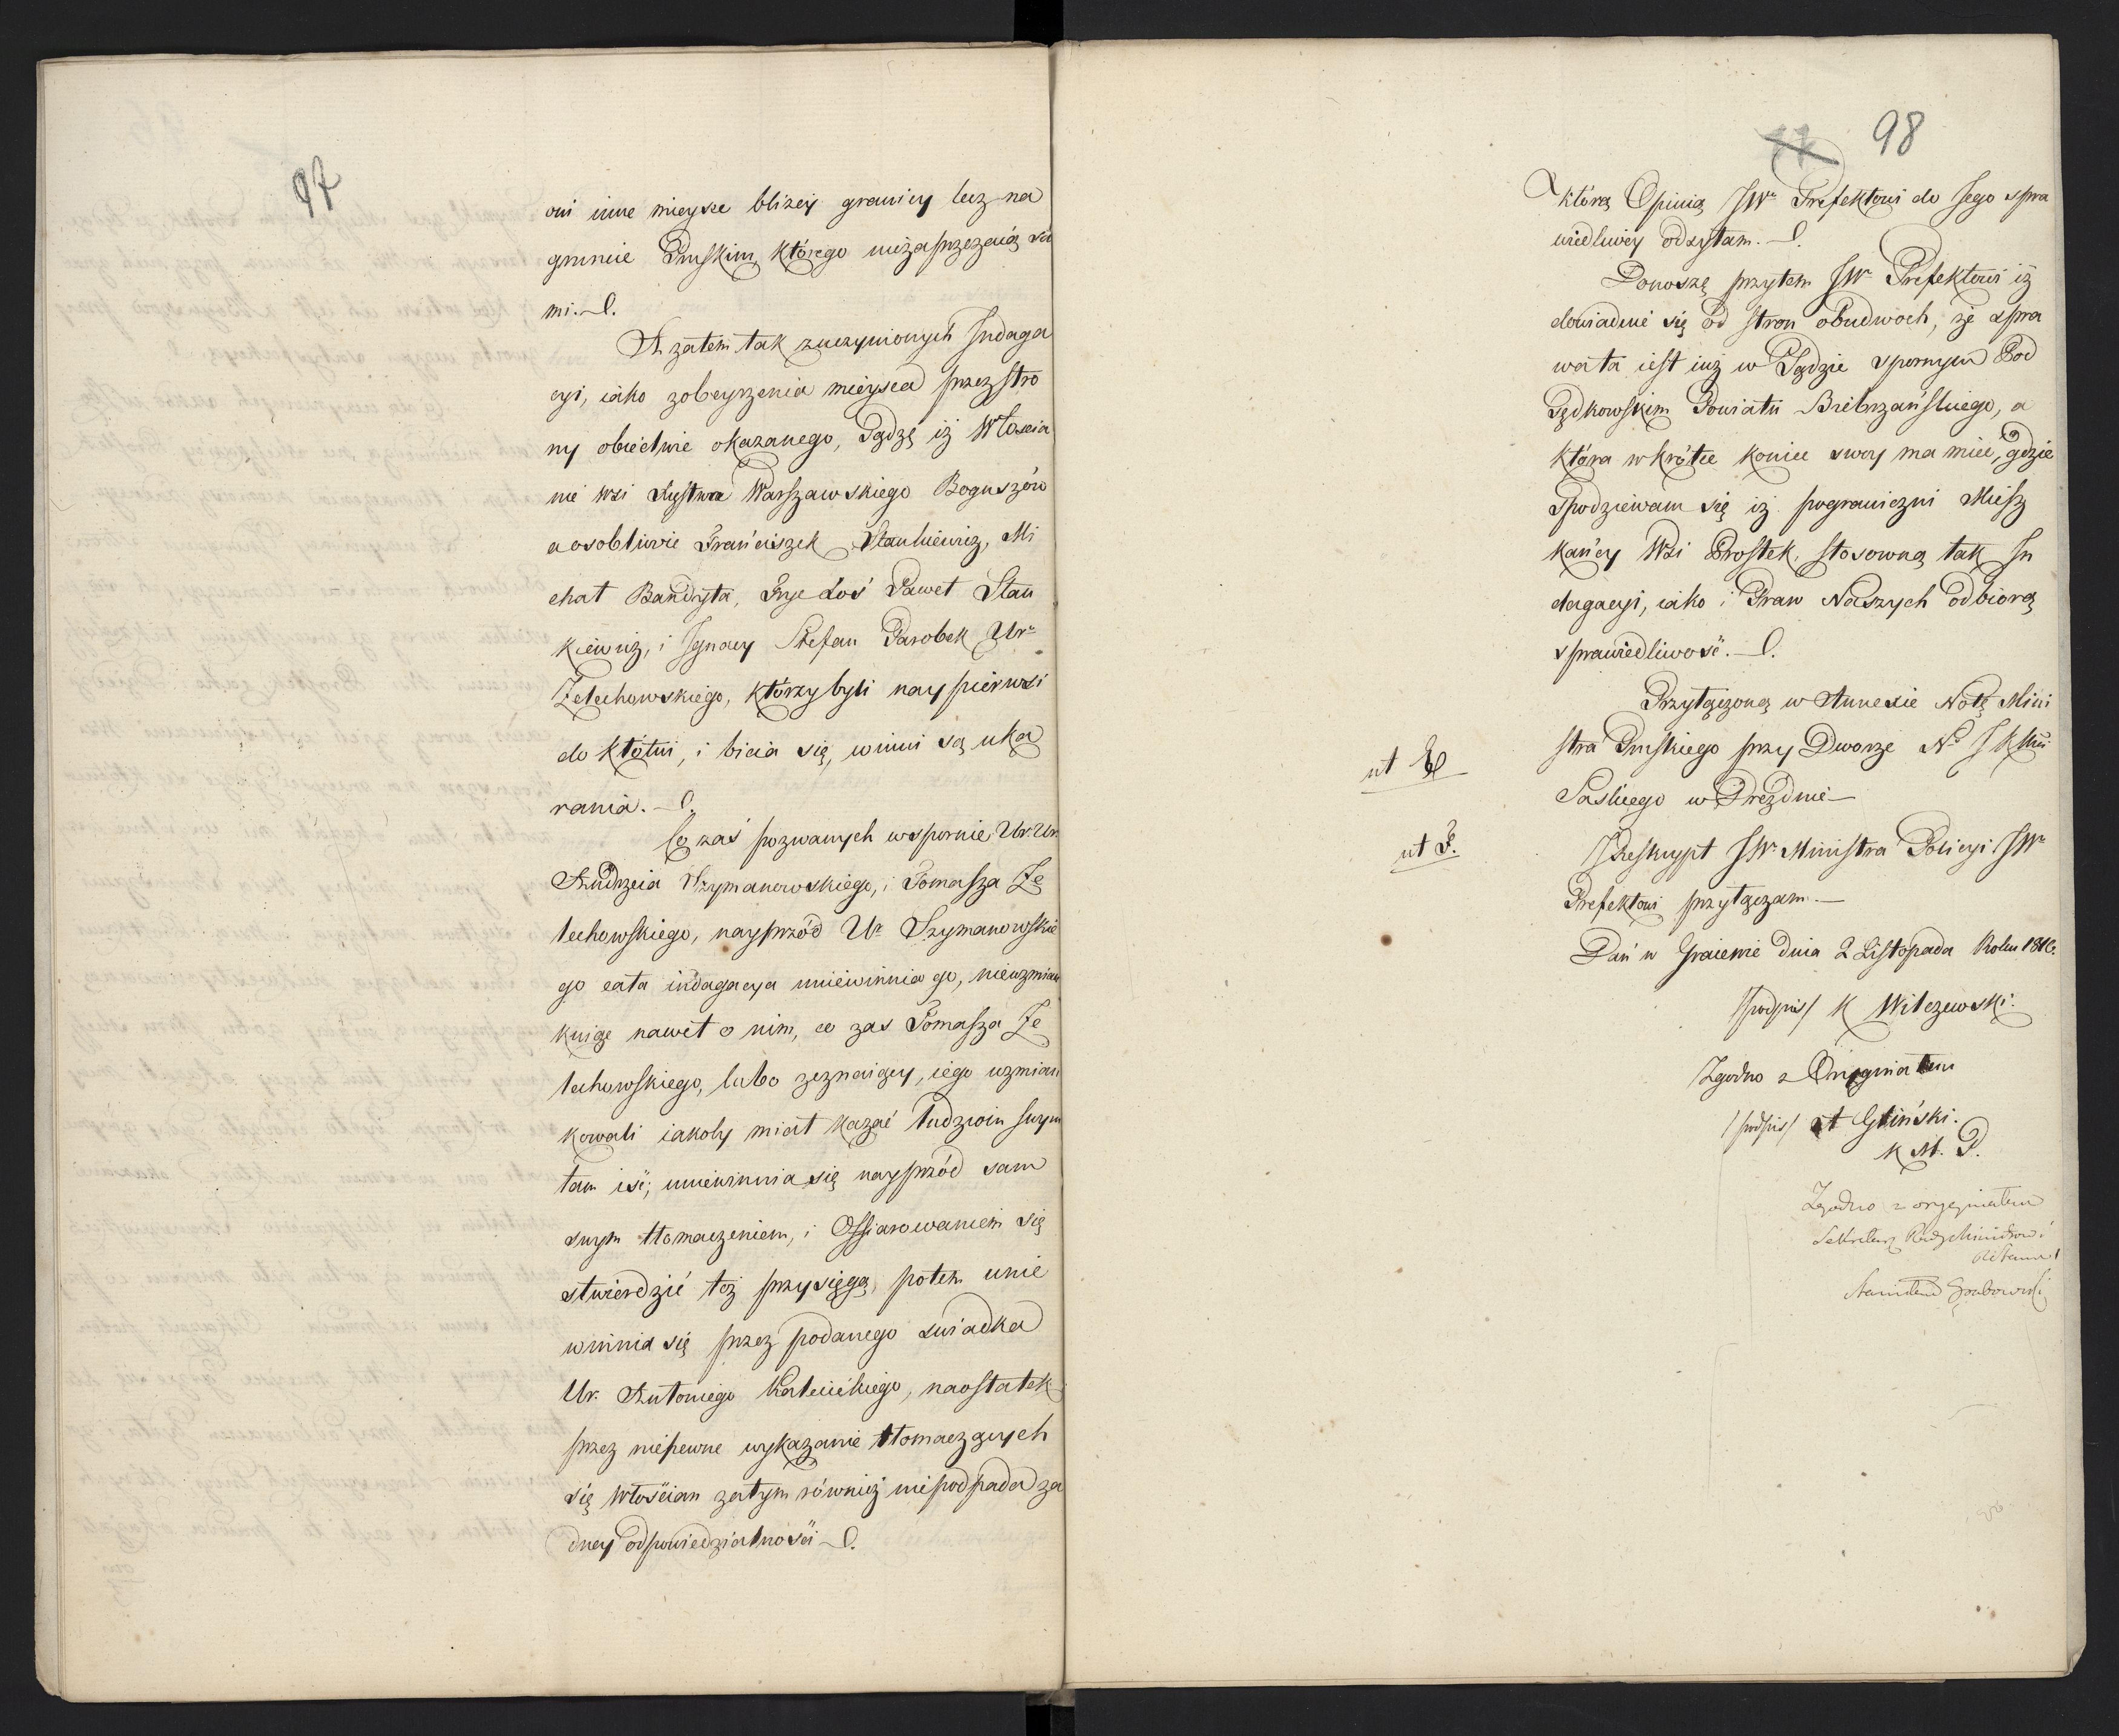 97
oni inne mieysce bliżey granicy lecz na
gruncie Pruskim, którego niezaprzeczaią sa
mi.
A zatem tak z uczynionych Indaga
cyi, iako z obeyrzenia mieysca przez stro
ny obiedwie okazanego, Sądzę iż Włoscia
nie wsi Xięstwa Warszawskiego Boguszów
a osobliwie Franciszek Stankiewicz, Mi
chał Bandyta, Łoś Paweł Stan
kiewicz, i Ignacy Stefan Parobek Ur
Żelechowskiego, którzy byli naypierwsi
do kłótni, i bicia się, winni są uka
rania.
Co zaś pozwanych wspornie Ur. Ur.
Andrzeia Szymanowskiego, i Tomasza Że
lechowskiego, nayprzód Ur Szymanowskie
go cała indagacya uniewinnia go, niewzmian
kuiąc nawet o nim, co zas Tomasza Że
lechowskiego, lubo zeznaiący, iego wzmian
kowali iakoby miał kazać ludziom swym
tam iść; uniewinnia się nayprzód sam
swym tłomaczeniem, i Offiarowaniem się
stwierdzić toż przysięgą, potem unie
winnia się przez podanego swiadka
Ur. Antoniego, naostatek
przez niepewne wykazanie tłomaczących
się Włościan zatym również niepodpada ża
dney odpowiedzialności
98
którą Opinią JW Prefektowi do Jego spra
wiedliwey odsyłam.
Donoszę przytem JW Prefektowi iż
dowiaduie się od stron obudwoch, że spra
wa ta iest iuż w Sądzie spornym Pod
Sędkowskim Powiatu Biebrzańskiego, a
która wkrótce koniec swoy ma mieć, gdzie
Spodziewam się iż pograniczni Miesz
kańcy Wsi Prostek, stosowną tak In
dagacyi, iako i Praw Naszych odbiorą
sprawiedliwość.
Przyłączoną w Annexie Notę Mini
stra Pruskiego przy Dworze N. J K Mci
ut E
Saskiego w Drezdnie
ut F.
Reskrypt JW Ministra Policyi JW
Prefektowi przyłączam.
Dań w Graiewie dnia 2 Listopada Roku 1810.
/podpis/ K Wilczewski.
Zgodno z Oryginałem
/podpis/ Gliński.
K M. P.
Zgodno z oryginałem
Sekretarz Rady Ministrów i
Stanu
Stanisław Grabowski